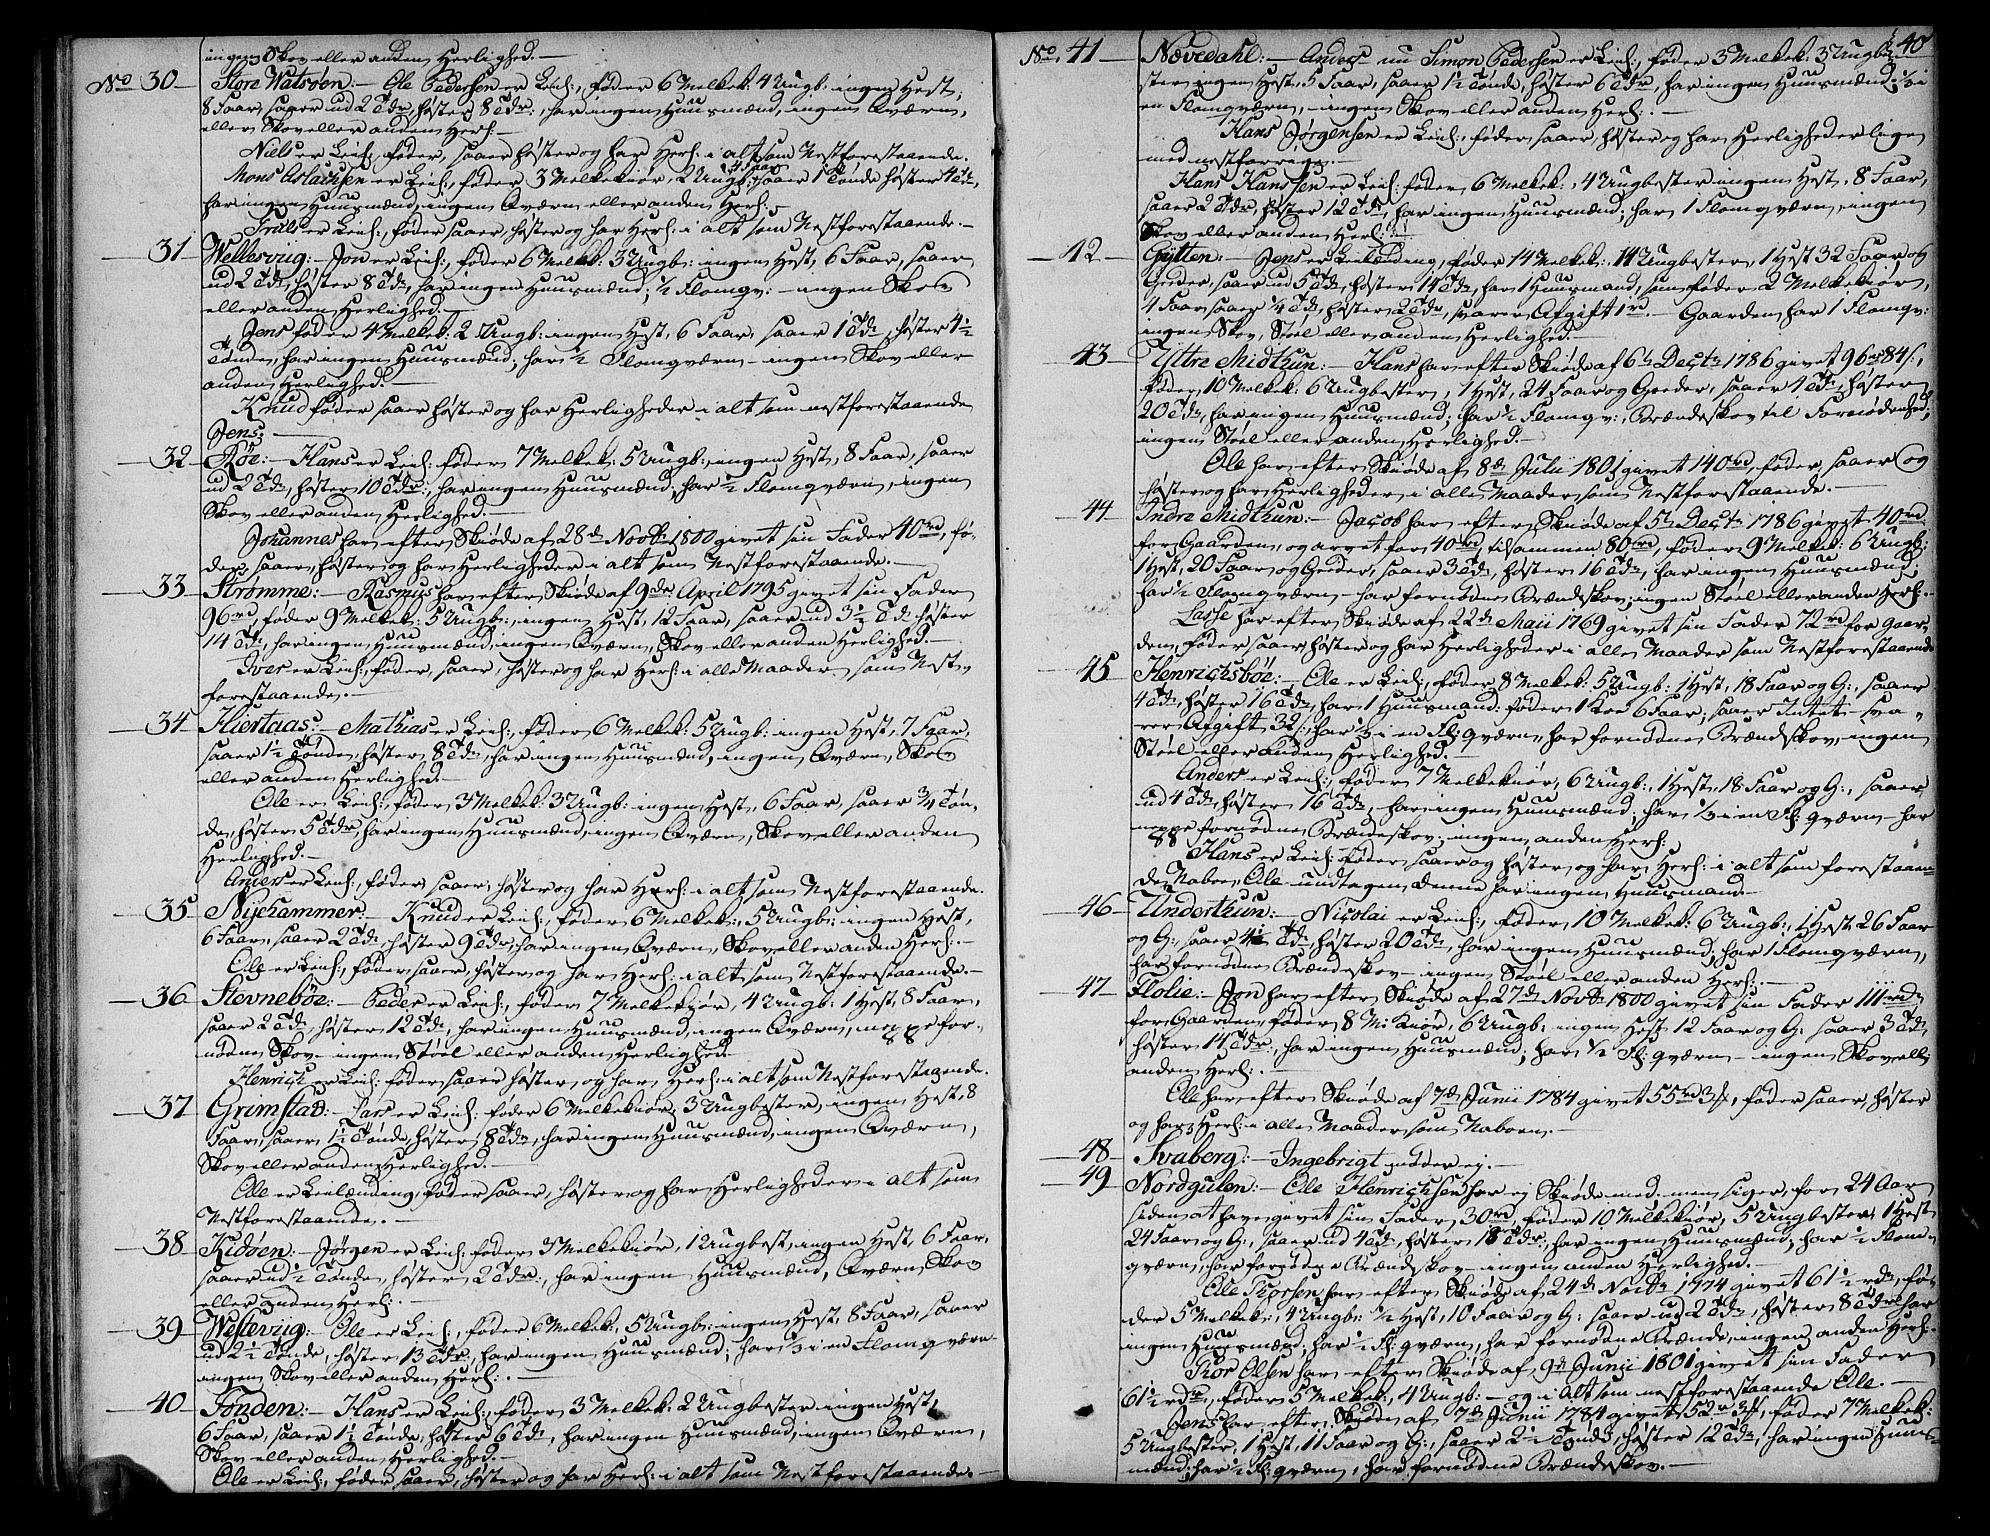 ingen Skov eller anden Herlighed. —
No 30 — Store Watsøen: — Ole Pedersen er Leil:, føder 6 Melkek: 4 Ungb: ingen Hest,
8 Faar, saaer ud 2 Tdr, høster 8 Tdr:, har ingen Huusmænd, ingen Qværn,
eller Skov eller anden Herl: —
Niels er Leil:, føder, saaer høster og har Herl: i alt som Nestforestaaende.
Mons Aslachsen er Leil:, føder 3 Melkekiør, 2 Ungb: 4 Faar saaer 1 Tønde høster 4 Tdr,
har ingen Huusmænd, ingen Qværn eller anden Herl: —
Truls er Leil: føder saaer, høster og har Herl: i alt som Nestforestaaende. —
31 Wellesviig: — Jon er Leil:, føder 6 Melkek: 3 Ungb: ingen Hest, 6 Faar, saaer
ud 2 Tdr, høster 8 Tdr, har ingen Huusmænd; 1/2 Flomqv: — ingen Skov
eller anden Herlighed. —
Jens føder 4 Melkek: 2 Ungb: ingen Hest, 6 Faar, saaer 1 Tdr, høster 4 1/2
Tønder, har ingen Huusmænd; har 1/2 Flomqværn — ingen Skov eller
anden Herlighed. —
Knud føder saaer høster og har Herligheder i alt som nestforestaaende
Jens. —
— 32 — Røe: — Hans er Leil: føder 7 Melkek: 5 Ungb:, ingen Hest, 8 Faar, saaer
ud 2 Tdr, høster 10 Tdr:, har ingen Huusmænd; har 1/2 Flomqværn, ingen
Skov eller anden Herlighed. —
Johannes har efter Skiøde af 28de Novbr 1800 givet sin Fader 40 rd, fø-
der, saaer, høster og har Herligheder i alt som Nestforestaaende. —
— 33 — Strømme: — Rasmus har efter Skiøde af 9de April 1795 givet sin Fader
96 rd, føder 9 Melkek: 5 Ungb:, ingen Hest, 12 Faar, saaer ud 3 1/2 Td: høster
14 Td:, har ingen Huusmænd, ingen Qværn, Skov eller anden Herlighed. —
Iver er Leil: føder, saaer, høster og har Herl: i alle Maader som Nest-
forestaaende. —
— 34 — Hiertaas: — Mathias er Leil:, føder 6 Melkek: 5 Ungb: ingen Hest, 7 Faar,
saaer 1 1/2 Tønde, høster 8 Tdr, har ingen Huusmænd, ingen Qværn, Skov
eller anden Herlighed. —
Ole er Leil:, føder 3 Melkek: 3 Ungb: ingen Hest, 6 Faar, saaer 3/4 Tøn-
de, høster 5 Tdr, har ingen Huusmænd, ingen Qværn, Skov eller anden
Herlighed. —
Anders er Leil:, føder saaer, høster og har Herl: i alt som Nestforestaaende.
— 35 — Nyehammer: — Knud er Leil:, føder 6 Melkek:, 5 Ungb: ingen Hest,
6 Faar, saaer 2 Tdr, høster 9 Tdr, har ingen Qværn, Skov eller anden Herl. —
Ole er Leil:, føder saaer, høster og har Herl: i alt som Nestforestaaende. —
— 36 — Stevnebøe: — Peder er Leil:, føder 7 Melkekiør, 4 Ungb: 1 Hest, 8 Faar,
saaer 2 Tdr, høster 12 Tdr, har ingen Huusmænd, ingen Qværn, neppe for-
nøden Skov — ingen Støel eller anden Herlighed
Henrich er Leil: føder saaer høster, og har Herl: i alt som Nestforestaaende.
— 37 Grimstad: — Lars er Leil: føder 6 Melkekiør, 3 Ungbester, ingen Hest, 8
Faar, saaer 1 1/2 Tønde, høster 8 Tdr, har ingen Huusmænd, ingen Qværn,
Skov eller anden Herlighed. —
Ole er Leilænding, føder saaer, høster og har Herligheder i alt som
Nestforestaaende. —
— 38 — Kidøen: — Jørgen er Leil: føder 3 Melkekiør, 1 Ungbest, ingen Hest, 6 Faar,
saaer ud 1/2 Tønde, høster 2 Tdr:, har ingen Huusmænd, Qværn, Skov
eller anden Herl:. —
— 39 — Westeviig: — Ole er Leil:, føder 6 Melkek:, 5 Ungb: ingen Hest, 8 Faar, saaer
ud 2 1/2 Tønde, høster 13 Tdr:, har ingen Huusmænd; har 1/3 i en Flomqværn
— ingen Skov eller anden Herl:. —
— 40 — Tonden: — Hans er Leil:, føder 3 Melkek: 2 Ungbester ingen Hest,
6 Faar, saaer 1 1/2 Tønde, høster 6 Tdr, har ingen Huusmænd, ingen Qværn,
Skov eller anden Herlighed. —
Ole er Leil:, føder saaer, høster og har Herl: i alt som Nestforestaaende. —
40
No. 41 — Nøvedahl: — Anders nu Simon Pedersen er Leil:, føder 3 Melkek: 3 Ungbe-
ster, ingen Hest, 5 Faar, saaer 1 1/2 Tønde, høster 6 Tdr, har ingen Huusmænd; 1/3 i
en Flomqværn, — ingen Skov eller anden Herl:. —
Hans Jørgensen er Leil:, føder, saaer, høster og har Herligheder lige
med nestforrige. —
Hans Hanssen er Leil: føder 6 Melkek:, 4 Ungbester ingen Hest, 8 Faar,
saaer 2 Tdr, høster 12 Tdr, har ingen Huusmænd; har 1 Flomqværn, ingen
Skov eller anden Herl: —
— 42 — Gytten: — Jens er Leilænding, føder 14 Melkek:, 14 Ungbester, 1 Hest 32 Faar og
Geeder, saaer ud 5 Tdr, høster 14 Tdr, har 1 Huusmand, som føder 2 Melkekiør,
4 Faar, saaer 1/4 Tdr, høster 2 Tdr, svarer Afgift 1 rd — Gaarden har 1 Flomqv:
ingen Skov, Støel eller anden Herlighed. —
43 Yttre Midthun: — Hans har efter Skiøde af 6te Decbr 1786 givet 96 rd 84 s.,
føder, 10 Melkek: 6 Ungbester, 1 Hest, 24 Faar og Geeder, saaer 4 Tdr, høster
20 Tdr, har ingen Huusmænd; har 1/2 Flomqv: Brændeskov til Fornødenhed;
ingen Støel eller anden Herlighed. —
Ole har efter Skiøde af 8de Julii 1801 givet 140 rd, føder, saaer og
høster og har Herligheder i alle Maader som Nestforestaaende. —
— 44 — Indre Midthun: — Jacob har efter Skiøde af 5te Decbr 1786 givet 40 rd.
for Gaarden, og arvet for 40 rd, tilsammen 80 rd, føder 9 Melkek: 6 Ungb:
1 Hest, 20 Faar og Geeder, saaer 3 Tdr, høster 16 Tdr, har ingen Huusmænd;
har 1/2 Flomqværn — har fornøden Brændskov; ingen Støel eller anden Herl:. —
Lasse har efter Skiøde af 22de Maii 1769 givet sin Fader 72 rd for Gaar-
den, føder saaer, høster og har Herligheder i alle Maader som Nestforestaaende
— 45 Henrichsbøe: — Ole er Leil:, føder 8 Melkek: 5 Ungb: 1 Hest, 18 Faar og G:, saaer
4 Tdr, høster 16 Tdr, har 1 Huusmand: føder 1 Koe 6 Faar, saaer Intet — sva-
rer Afgift 32 s:, har 1/3 i en Fl: qværn, har fornøden Brændskov, ingen
Støel eller Anden Herlighed. —
Anders er Leil:, føder 7 Melkekiør, 6 Ungb:, 1 Hest, 18 Faar og G:, saaer
ud 4 Tdr, høster 16 Tdr, har ingen Huusmænd; har 1/3 i en Fl: qværn — har
neppe fornøden Brændeskov, ingen anden Herl:
Hans er Leil: føder, saaer og høster, og har Herl: i alt som forestaaen-
de Naboe Ole undtagen denne har ingen Huusmand —
— 46 — Underthun: — Nicolai er Leil:, føder 10 Melkek: 6 Ungb:, 1 Hest 26 Faar
og G:, saaer 4 1/2 Tdr, høster 20 Tdr, har ingen Huusmænd; har 1 Flomqværn,
har fornøden Brændeskov — ingen Støel eller anden Herl:. —
— 47 — Flolie: — Jon har efter Skiøde af 27de Novbr 1800 givet sin Fader 111 rd
for Gaarden, føder 8 M: Kiør, 6 Ungb: ingen Hest 12 Faar og G: saaer 3 Tdr,
høster 14 Tdr:, har ingen Huusmænd; har 1/2 Fl: qværn — ingen Skov ell:
anden Herl:. —
Ole har efter Skiøde af 7de Junii 1784 givet 55 rd 3 s, føder saaer, høster
og har Herl: i alle Maader som Naboen. —
— 48 — Svaberg: — Ingebrigt møder ej. —
— 49 — Nordgulen: — Ole Henrichsen har ej Skiøde med. men siger, for 24 Aar
siden at have givet sin Fader 30 rd, føder 10 Melkekiør, 5 Ungbester, 1 Hest
24 Faar og G:, saaer ud 4 Td, høster 18 Tdr:, har ingen Huusmænd; har 1/2 Flom-
qværn, har fornøden Brændskov — ingen anden Herlighed. —
Ole Thorsen har efter Skiøde af 24de Novbr 1774 givet 61 1/2 rd, fø-
der 5 Melkek:, 4 Ungb: 1/2 Hest, 10 Faar og G: saaer ud 2 Tdr, høster 8 Tdr har
ingen Huusmænd; har 1/2 Fl: qværn, har fornøden Brænde, ingen anden Herl:.
Thor Olsen har efter Skiøde af 9de Junii 1801 givet sin Fader
61 1/2 rdr, føder 5 Melkek:, 4 Ungb: — og i alt som nestforestaaende Ole. —
Jens har efter Skiøde af 7de Junii 1784 givet 52 rd 3 s, føder 7 Melkek:
5 Ungbester, 1 Hest, 11 Faar og G:, saaer 2 1/2 Tønde, høster 12 Tdr, har ingen Huus-
mænd, har 1/2 Fl: qværn, har fornøden Brændeskov. —